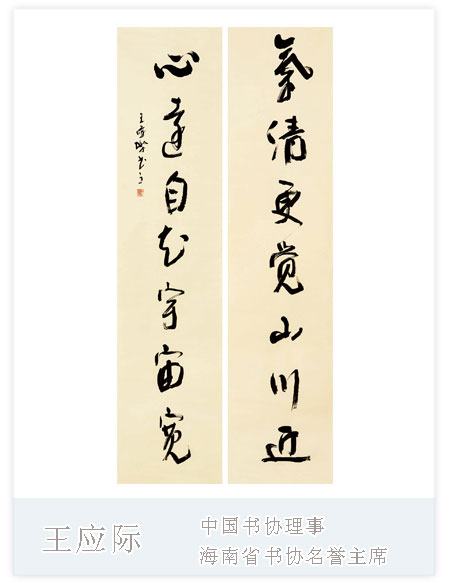 氣清更覺山川近
心遠自知宇宙寬
王應際書
王应际
中国书协理事
海南省书协名誉主席